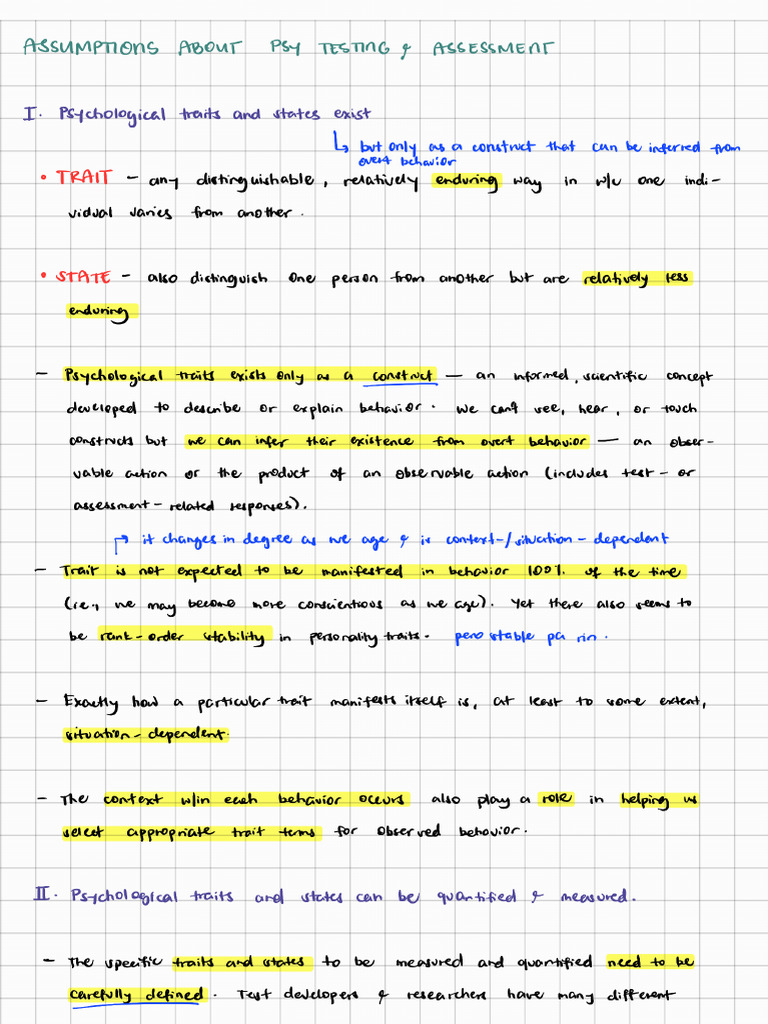 ASSUMPTIONS ABOUT PSY TESTING & ASSESSMENT
I. Psychological traits and states exist
↳ but only as a construct that can be inferred from
overt behavior
• TRAIT – any distinguishable, relatively enduring way in w/c one indi-
vidual varies from another.
• STATE – also distinguish one person from another but are relatively less
enduring
– Psychological traits exists only as a construct — an informed, scientific concept
developed to describe or explain behavior. We can't see, hear, or touch
constructs but we can infer their existence from overt behavior — an obser-
vable action or the product of an observable action (includes test- or
assessment-related responses).
it changes in degree as we age & is context-/situation-dependent
– Trait is not expected to be manifested in behavior 100% of the time
(i.e., we may become more conscientious as we age). Yet there also seems to
be rank-order stability in personality traits. pero stable pa rin.
– Exactly how a particular trait manifests itself is, at least to some extent,
situation-dependent.
– The context w/in each behavior occurs also play a role in helping us
select appropriate trait terms for observed behavior.
II. Psychological traits and states can be quantified & measured.
– The specific traits and states to be measured and quantified need to be
carefully defined. Test developers & researchers have many different